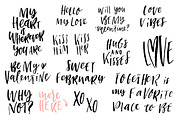 MY
HEART
IS
WHEREVER
YOU ARE
Hello
MY LOVE
KISS KISS
HIM HER
Will you
BE MY
VALENTINE?
LOVE
VIBES
HUGS
AND
KISSES
LOVE
BE MY
Valentine
SWEET
FEBRUARY
TOGETHER is
MY FAVORITE
PLACE to BE
WHY
NOT?
more
HERE
XO
XO